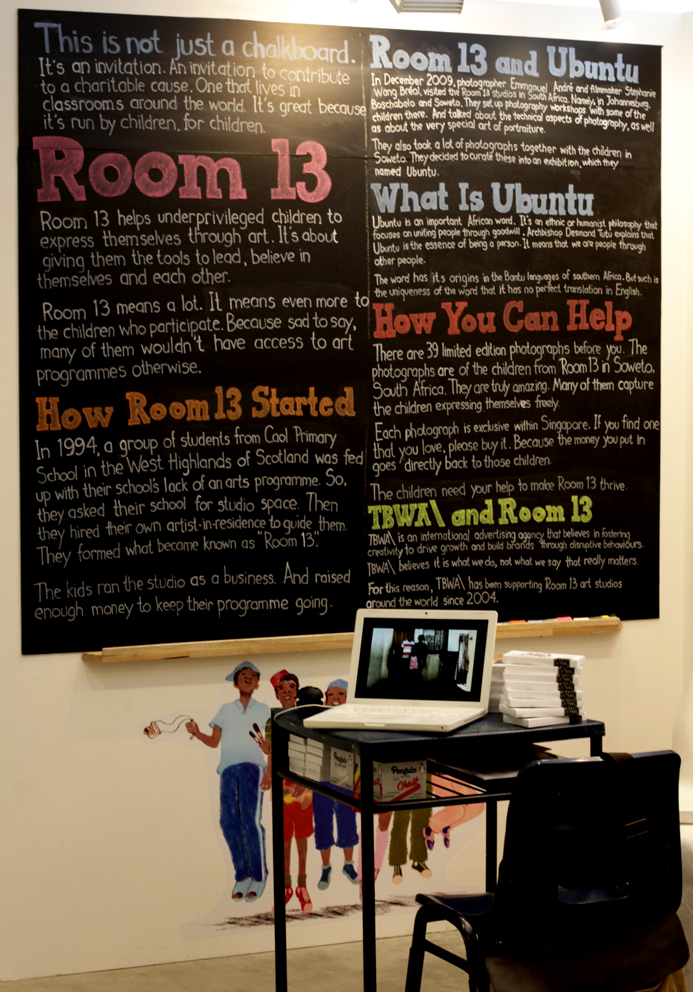 This is not just a chalkboard.
It's an invitation. An invitation to contribute
to a charitable cause. One that lives in
classrooms around the world. It's great because
it's run by children, for children.
Room 13
Room 13 helps underprivileged children to
express themselves through art. It's about
giving them the tools to lead, believe in
themselves and each other.
Room 13 means a lot. It means even more to
the children who participate. Because sad to say,
many of them wouldn't have access to art
programmes otherwise.
How Room 13 Started
In 1994, a group of students from Caol Primary
School in the West Highlands of Scotland was fed
up with their school's lack of an arts programme. So,
they asked their school for studio space. Then
they hired their own artist-in-residence to guide them.
They formed what became known as "Room 13."
The kids ran the studio as a business. And raised
enough money to keep their programme going.
Room 13 and Ubuntu
In December 2009, photographer Emmanuel André and filmmaker Stephanie
Wang Bréal, visited the Room 13 studios in South Africa. Namely, in Johannesburg,
Boschabelo and Soweto. They set up photography workshops with some of the
children there. And talked about the technical aspects of photography, as well
as about the very special art of portraiture.
They also took a lot of photographs together with the children in
Soweto. They decided to curate these into an exhibition, which they
named Ubuntu.
What Is Ubuntu
Ubuntu is an important African word. It's an ethic or humanist philosophy that
focuses on uniting people through goodwill. Archbishop Desmond Tutu explains that
Ubuntu is the essence of being a person. It means that we are people through
other people.
The word has it's origins in the Bantu languages of southern Africa. But such is
the uniqueness of the word that it has no perfect translation in English.
How You Can Help
There are 39 limited edition photographs before you. The
photographs are of the children from Room 13 in Soweto,
South Africa. They are truly amazing. Many of them capture
the children expressing themselves freely.
Each photograph is exclusive within Singapore. If you find one
that you love, please buy it. Because the money you put in
goes directly back to those children.
The children need your help to make Room 13 thrive.
TBWA\ and Room 13
TBWA\ is an international advertising agency that believes in fostering
creativity to drive growth and build brands through disruptive behaviours.
TBWA\ believes it is what we do, not what we say that really matters.
For this reason, TBWA\ has been supporting Room 13 art studios
around the world since 2004.
Penguin
Chalk